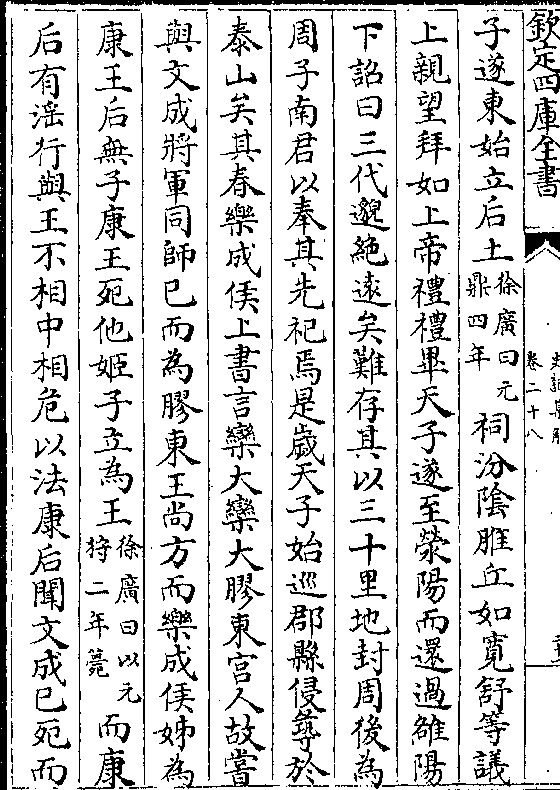 欽定四庫全書
卷二十八
子遂東始立后土徐廣曰元鼎四年祠汾陰脽丘如寛舒等議
上親望拜如上帝禮禮畢天子遂至滎陽而還過雒陽
下詔曰三代邈絶逺矣難存其以三十里地封周後為
周子南君以奉其先祀焉是歳天子始巡郡縣侵尋於
泰山矣其春樂成侯上書言欒大欒大膠東宮人故嘗
與文成將軍同師已而為膠東王尚方而樂成侯姊為
康王后無子康王死他姬子立為王徐廣曰以元狩二年薨而康
后有淫行與王不相中相危以法康后聞文成已死而